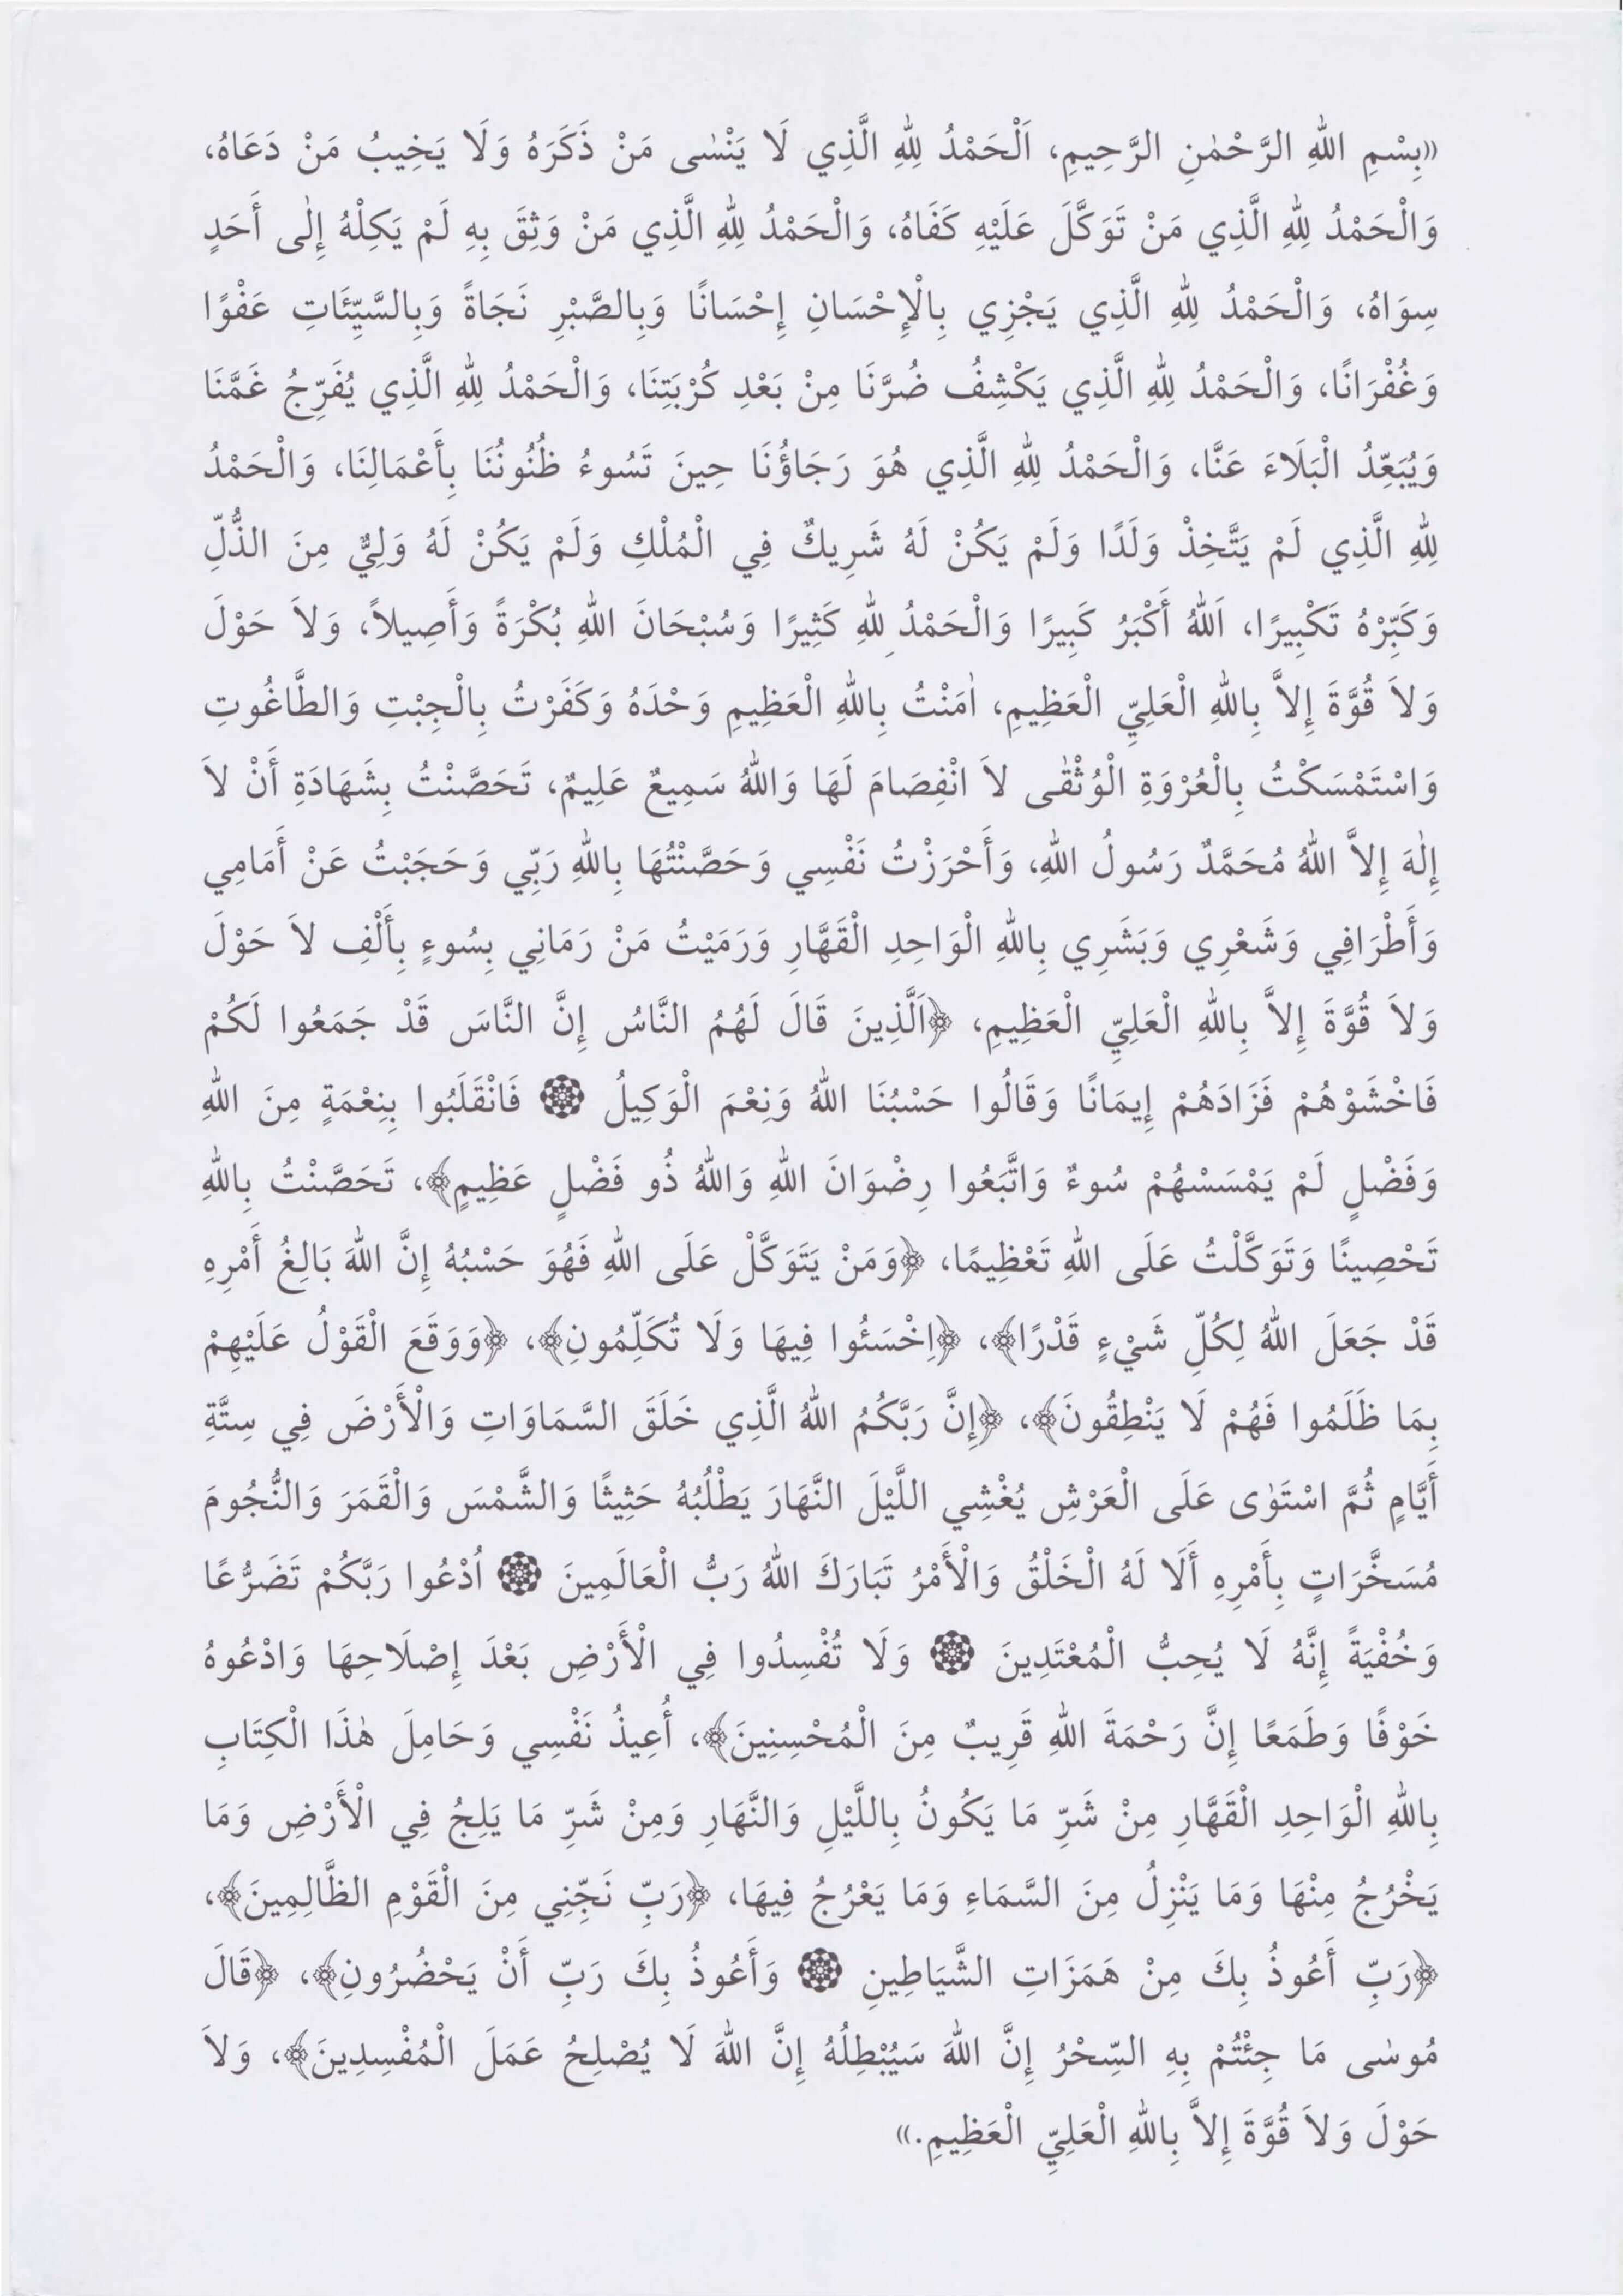 «بِسْمِ اللهِ الرَّحْمٰنِ الرَّحِيمِ، اَلْحَمْدُ لِلهِ الَّذِي لَا يَنْسٰى مَنْ ذَكَرَهُ وَلَا يَخِيبُ مَنْ دَعَاهُ،
وَالْحَمْدُ لِلهِ الَّذِي مَنْ تَوَكَّلَ عَلَيْهِ كَفَاهُ، وَالْحَمْدُ لِلهِ الَّذِي مَنْ وَثِقَ بِهِ لَمْ يَكِلْهُ إِلٰى أَحَدٍ
سِوَاهُ، وَالْحَمْدُ لِلهِ الَّذِي يَجْزِي بِالْإِحْسَانِ إِحْسَانًا وَبِالصَّبْرِ نَجَاةً وَبِالسَّيِّئَاتِ عَفْوًا
وَغُفْرَانًا، وَالْحَمْدُ لِلهِ الَّذِي يَكْشِفُ ضُرَّنَا مِنْ بَعْدِ كُرْبَتِنَا، وَالْحَمْدُ لِلهِ الَّذِي يُفَرِّجُ غَمَّنَا
وَيُبَعِّدُ الْبَلَاءَ عَنَّا، وَالْحَمْدُ لِلهِ الَّذِي هُوَ رَجَاؤُنَا حِينَ تَسُوءُ ظُنُونُنَا بِأَعْمَالِنَا، وَالْحَمْدُ
لِلهِ الَّذِي لَمْ يَتَّخِذْ وَلَدًا وَلَمْ يَكُنْ لَهُ شَرِيكٌ فِي الْمُلْكِ وَلَمْ يَكُنْ لَهُ وَلِيٌّ مِنَ الذُّلِّ
وَكَبِّرْهُ تَكْبِيرًا، اَللهُ أَكْبَرُ كَبِيرًا وَالْحَمْدُ لِلهِ كَثِيرًا وَسُبْحَانَ اللهِ بُكْرَةً وَأَصِيلاً، وَلاَ حَوْلَ
وَلاَ قُوَّةَ إِلاَّ بِاللهِ الْعَلِيِّ الْعَظِيمِ، اٰمَنْتُ بِاللهِ الْعَظِيمِ وَحْدَهُ وَكَفَرْتُ بِالْجِبْتِ وَالطَّاغُوتِ
وَاسْتَمْسَكْتُ بِالْعُرْوَةِ الْوُثْقٰى لاَ انْفِصَامَ لَهَا وَاللهُ سَمِيعٌ عَلِيمٌ، تَحَصَّنْتُ بِشَهَادَةِ أَنْ لاَ
إِلٰهَ إِلاَّ اللهُ مُحَمَّدٌ رَسُولُ اللهِ، وَأَحْرَزْتُ نَفْسِي وَحَصَّنْتُهَا بِاللهِ رَبِّي وَحَجَبْتُ عَنْ أَمَامِي
وَأَطْرَافِي وَشَعْرِي وَبَشَرِي بِاللهِ الْوَاحِدِ الْقَهَّارِ وَرَمَيْتُ مَنْ رَمَانِي بِسُوءٍ بِأَلْفِ لاَ حَوْلَ
وَلاَ قُوَّةَ إِلاَّ بِاللهِ الْعَلِيِّ الْعَظِيمِ، ﴿اَلَّذِينَ قَالَ لَهُمُ النَّاسُ إِنَّ النَّاسَ قَدْ جَمَعُوا لَكُمْ
فَاخْشَوْهُمْ فَزَادَهُمْ إِيمَانًا وَقَالُوا حَسْبُنَا اللهُ وَنِعْمَ الْوَكِيلُ ۞ فَانْقَلَبُوا بِنِعْمَةٍ مِنَ اللهِ
وَفَضْلٍ لَمْ يَمْسَسْهُمْ سُوءٌ وَاتَّبَعُوا رِضْوَانَ اللهِ وَاللهُ ذُو فَضْلٍ عَظِيمٍ﴾، تَحَصَّنْتُ بِاللهِ
تَحْصِينًا وَتَوَكَّلْتُ عَلَى اللهِ تَعْظِيمًا، ﴿وَمَنْ يَتَوَكَّلْ عَلَى اللهِ فَهُوَ حَسْبُهُ إِنَّ اللهَ بَالِغُ أَمْرِهِ
قَدْ جَعَلَ اللهُ لِكُلِّ شَيْءٍ قَدْرًا﴾، ﴿اِخْسَئُوا فِيهَا وَلَا تُكَلِّمُونِ﴾، ﴿وَوَقَعَ الْقَوْلُ عَلَيْهِمْ
بِمَا ظَلَمُوا فَهُمْ لَا يَنْطِقُونَ﴾، ﴿إِنَّ رَبَّكُمُ اللهُ الَّذِي خَلَقَ السَّمَاوَاتِ وَالْأَرْضَ فِي سِتَّةِ
أَيَّامٍ ثُمَّ اسْتَوٰى عَلَى الْعَرْشِ يُغْشِي اللَّيْلَ النَّهَارَ يَطْلُبُهُ حَثِيثًا وَالشَّمْسَ وَالْقَمَرَ وَالنُّجُومَ
مُسَخَّرَاتٍ بِأَمْرِهِ أَلَا لَهُ الْخَلْقُ وَالْأَمْرُ تَبَارَكَ اللهُ رَبُّ الْعَالَمِينَ ۞ اُدْعُوا رَبَّكُمْ تَضَرُّعًا
وَخُفْيَةً إِنَّهُ لَا يُحِبُّ الْمُعْتَدِينَ ۞ وَلَا تُفْسِدُوا فِي الْأَرْضِ بَعْدَ إِصْلَاحِهَا وَادْعُوهُ
خَوْفًا وَطَمَعًا إِنَّ رَحْمَةَ اللهِ قَرِيبٌ مِنَ الْمُحْسِنِينَ﴾، أُعِيذُ نَفْسِي وَحَامِلَ هٰذَا الْكِتَابِ
بِاللهِ الْوَاحِدِ الْقَهَّارِ مِنْ شَرِّ مَا يَكُونُ بِاللَّيْلِ وَالنَّهَارِ وَمِنْ شَرِّ مَا يَلِجُ فِي الْأَرْضِ وَمَا
يَخْرُجُ مِنْهَا وَمَا يَنْزِلُ مِنَ السَّمَاءِ وَمَا يَعْرُجُ فِيهَا، ﴿رَبِّ نَجِّنِي مِنَ الْقَوْمِ الظَّالِمِينَ﴾،
﴿رَبِّ أَعُوذُ بِكَ مِنْ هَمَزَاتِ الشَّيَاطِينِ ۞ وَأَعُوذُ بِكَ رَبِّ أَنْ يَحْضُرُونِ﴾، ﴿قَالَ
مُوسٰى مَا جِئْتُمْ بِهِ السِّحْرُ إِنَّ اللهَ سَيُبْطِلُهُ إِنَّ اللهَ لَا يُصْلِحُ عَمَلَ الْمُفْسِدِينَ﴾، وَلاَ
حَوْلَ وَلاَ قُوَّةَ إِلاَّ بِاللهِ الْعَلِيِّ الْعَظِيمِ.»